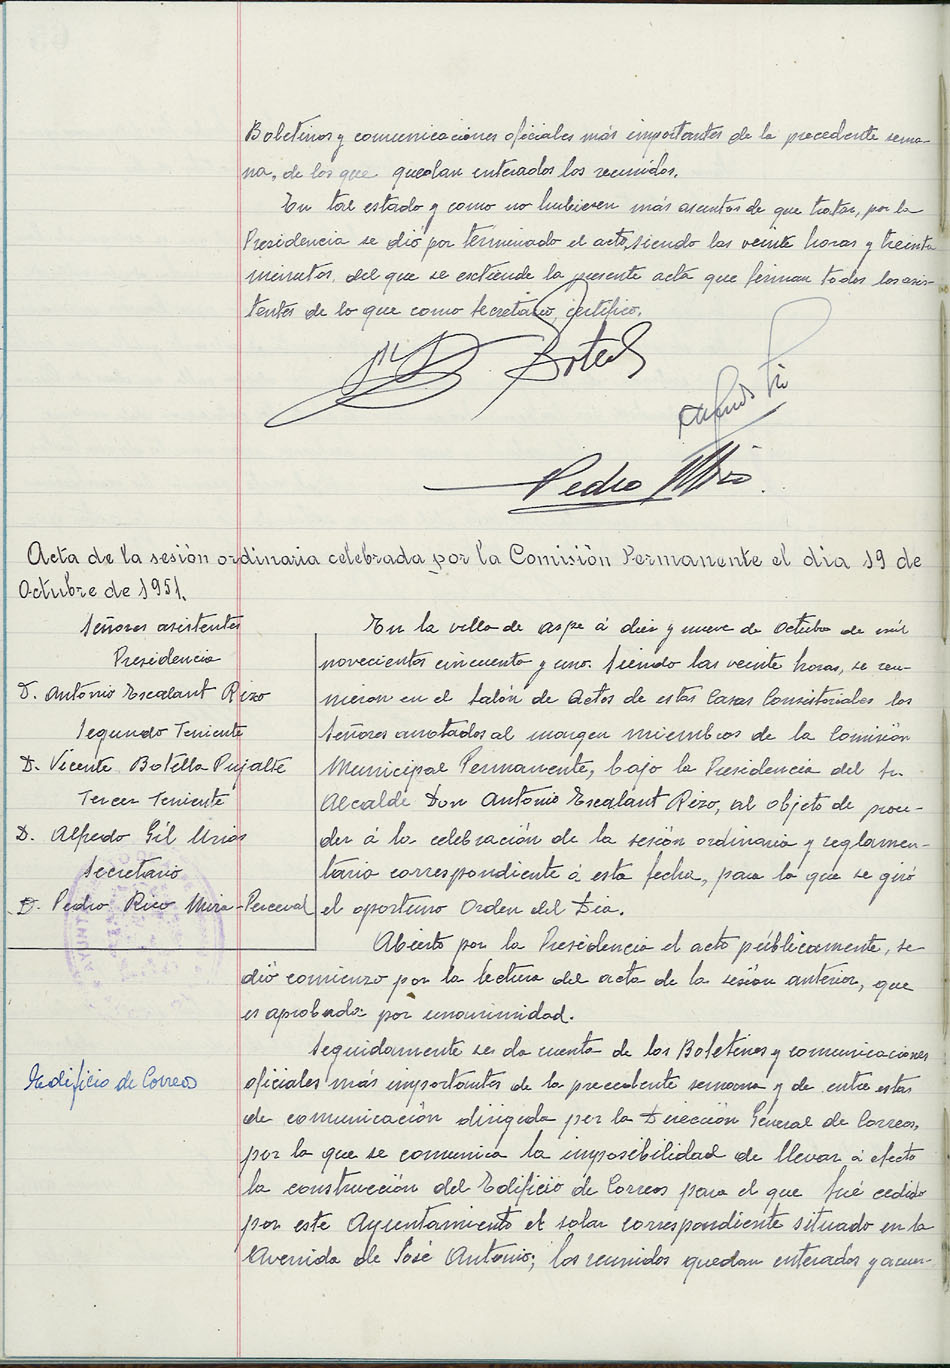 Boletines y comunicaciones oficiales más importantes de la precedente sema-
na, de los que quedan enterados los reunidos.
En tal estado y como no hubiesen más asuntos de que tratar, por la
Presidencia se dió por terminado el acto, siendo las veinte horas y treinta
minutos, del que se extiende la presente acta que firman todos los asis-
tentes de lo que como Secretario, certifico.
Botella
Alfredo Gil
Pedro Rico
Acta de la sesión ordinaria celebrada por la Comisión Permanente el dia 19 de
Octubre de 1951.
Señores asistentes
Presidencia
D. Antonio Escalant Rizo
Segundo Teniente
D. Vicente Botella Pujalte
Tercer Teniente
D. Alfredo Gil Urios
Secretario
D. Pedro Rico Mira-Perceval
En la villa de Aspe á diez y nueve de Octubre de mil
novecientos cincuenta y uno. Siendo las veinte horas, se reu-
nieron en el Salón de Actos de estas Casas Consistoriales los
Señores anotados al margen miembros de la Comisión
Municipal Permanente, bajo la Presidencia del Sr.
Alcalde Don Antonio Escalant Rizo, al objeto de proce-
der á la celebración de la sesión ordinaria y reglamen-
taria correspondiente á esta fecha, para la que se giró
el oportuno Orden del Dia.
Abierto por la Presidencia el acto públicamente, se
dió comienzo por la lectura del acta de la sesión anterior, que
es aprobada por unanimidad.
Edificio de Correos
Seguidamente se da cuenta de los Boletines y comunicaciones
oficiales más importantes de la precedente semana y de entre estas
de comunicación dirigida por la Dirección General de Correos,
por la que se comunica la imposibilidad de llevar á efecto
la construcción del Edificio de Correos para el que fué cedido
por este Ayuntamiento el solar correspondiente situado en la
Avenida de José Antonio; los reunidos quedan enterados y acuer-